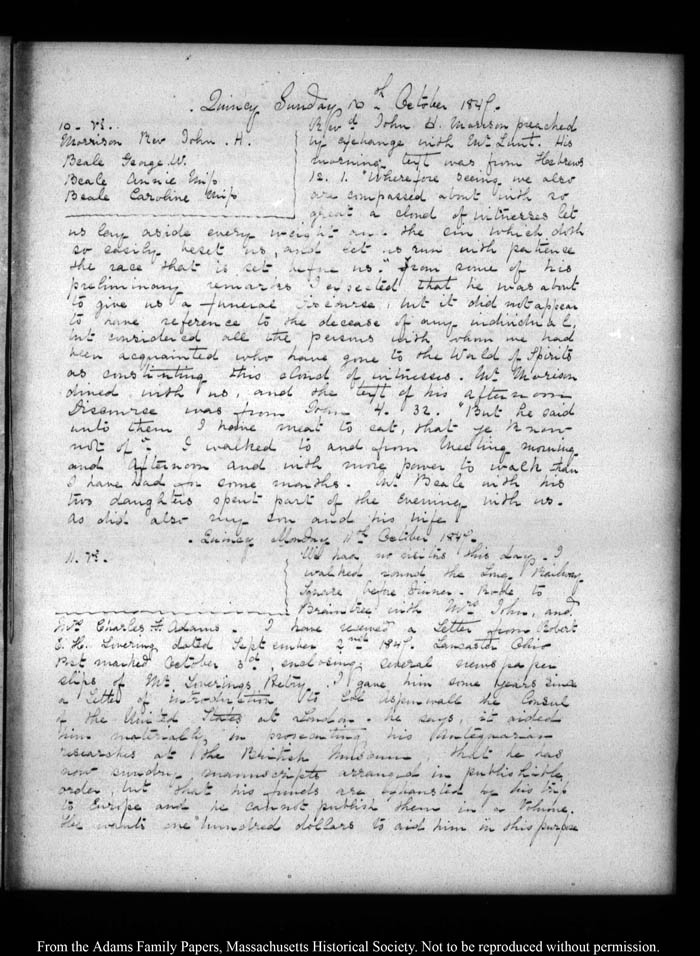 Quincy Sunday 10th October 1847.
10. VI.
Morrison Rev John. H.
Beale George W.
Beale Annie Miss
Beale Caroline Miss
Revd John H. Morrison preached
by exchange with Mr Lunt. His
morning text was from Hebrews
12. 1. "Wherefore seeing we also
are compassed about with so
great a cloud of witnesses let
us lay aside every weight and the sin which doth
so easily beset us, and let us run with patience
the race that is set before us." From some of his
preliminary remarks I expected that he was about
to give us a funeral Discourse, but it did not appear
to have reference to the decease of any individual,
but considered all the persons with whom we had
been acquainted who have gone to the World of Spirits
as constituting this cloud of witnesses. Mr Morison
dined with us, and the text of his afternoon
Discourse was from John 4. 32. "But he said
unto them I have meat to eat, that ye know
not of". I walked to and from Meeting morning
and Afternoon and with more power to walk than
I have had for some months. Mr Beale with his
two daughters spent part of the Evening with us.
as did also my son and his wife
Quincy Monday 11th October 1847.
11. VI.
We had no visitors this day. I
walked round the Long Railway
Square before Dinner. Rode to
Braintree with Mrs John, and
Mrs Charles F. Adams. I have received a Letter from Robert
E. H. Levering dated September 2nd 1847. Lancaster Ohio
Post marked October 3d, enclosing several newspaper
slips of Mr Leverings Poetry. I gave him some years since
a Letter of introduction to Col Aspinwall the Consul
of the United States at London. he says, it aided
him materially in prosecuting his Antiquarian
researches at the British Museum that he has
now sundry manuscripts arranged in publishable
order, but that his funds are exhausted by his trip
to Europe and he cannot publish them in a Volume.
He wants one hundred dollars to aid him in this purpose
From the Adams Family Papers, Massachusetts Historical Society. Not to be reproduced without permission.